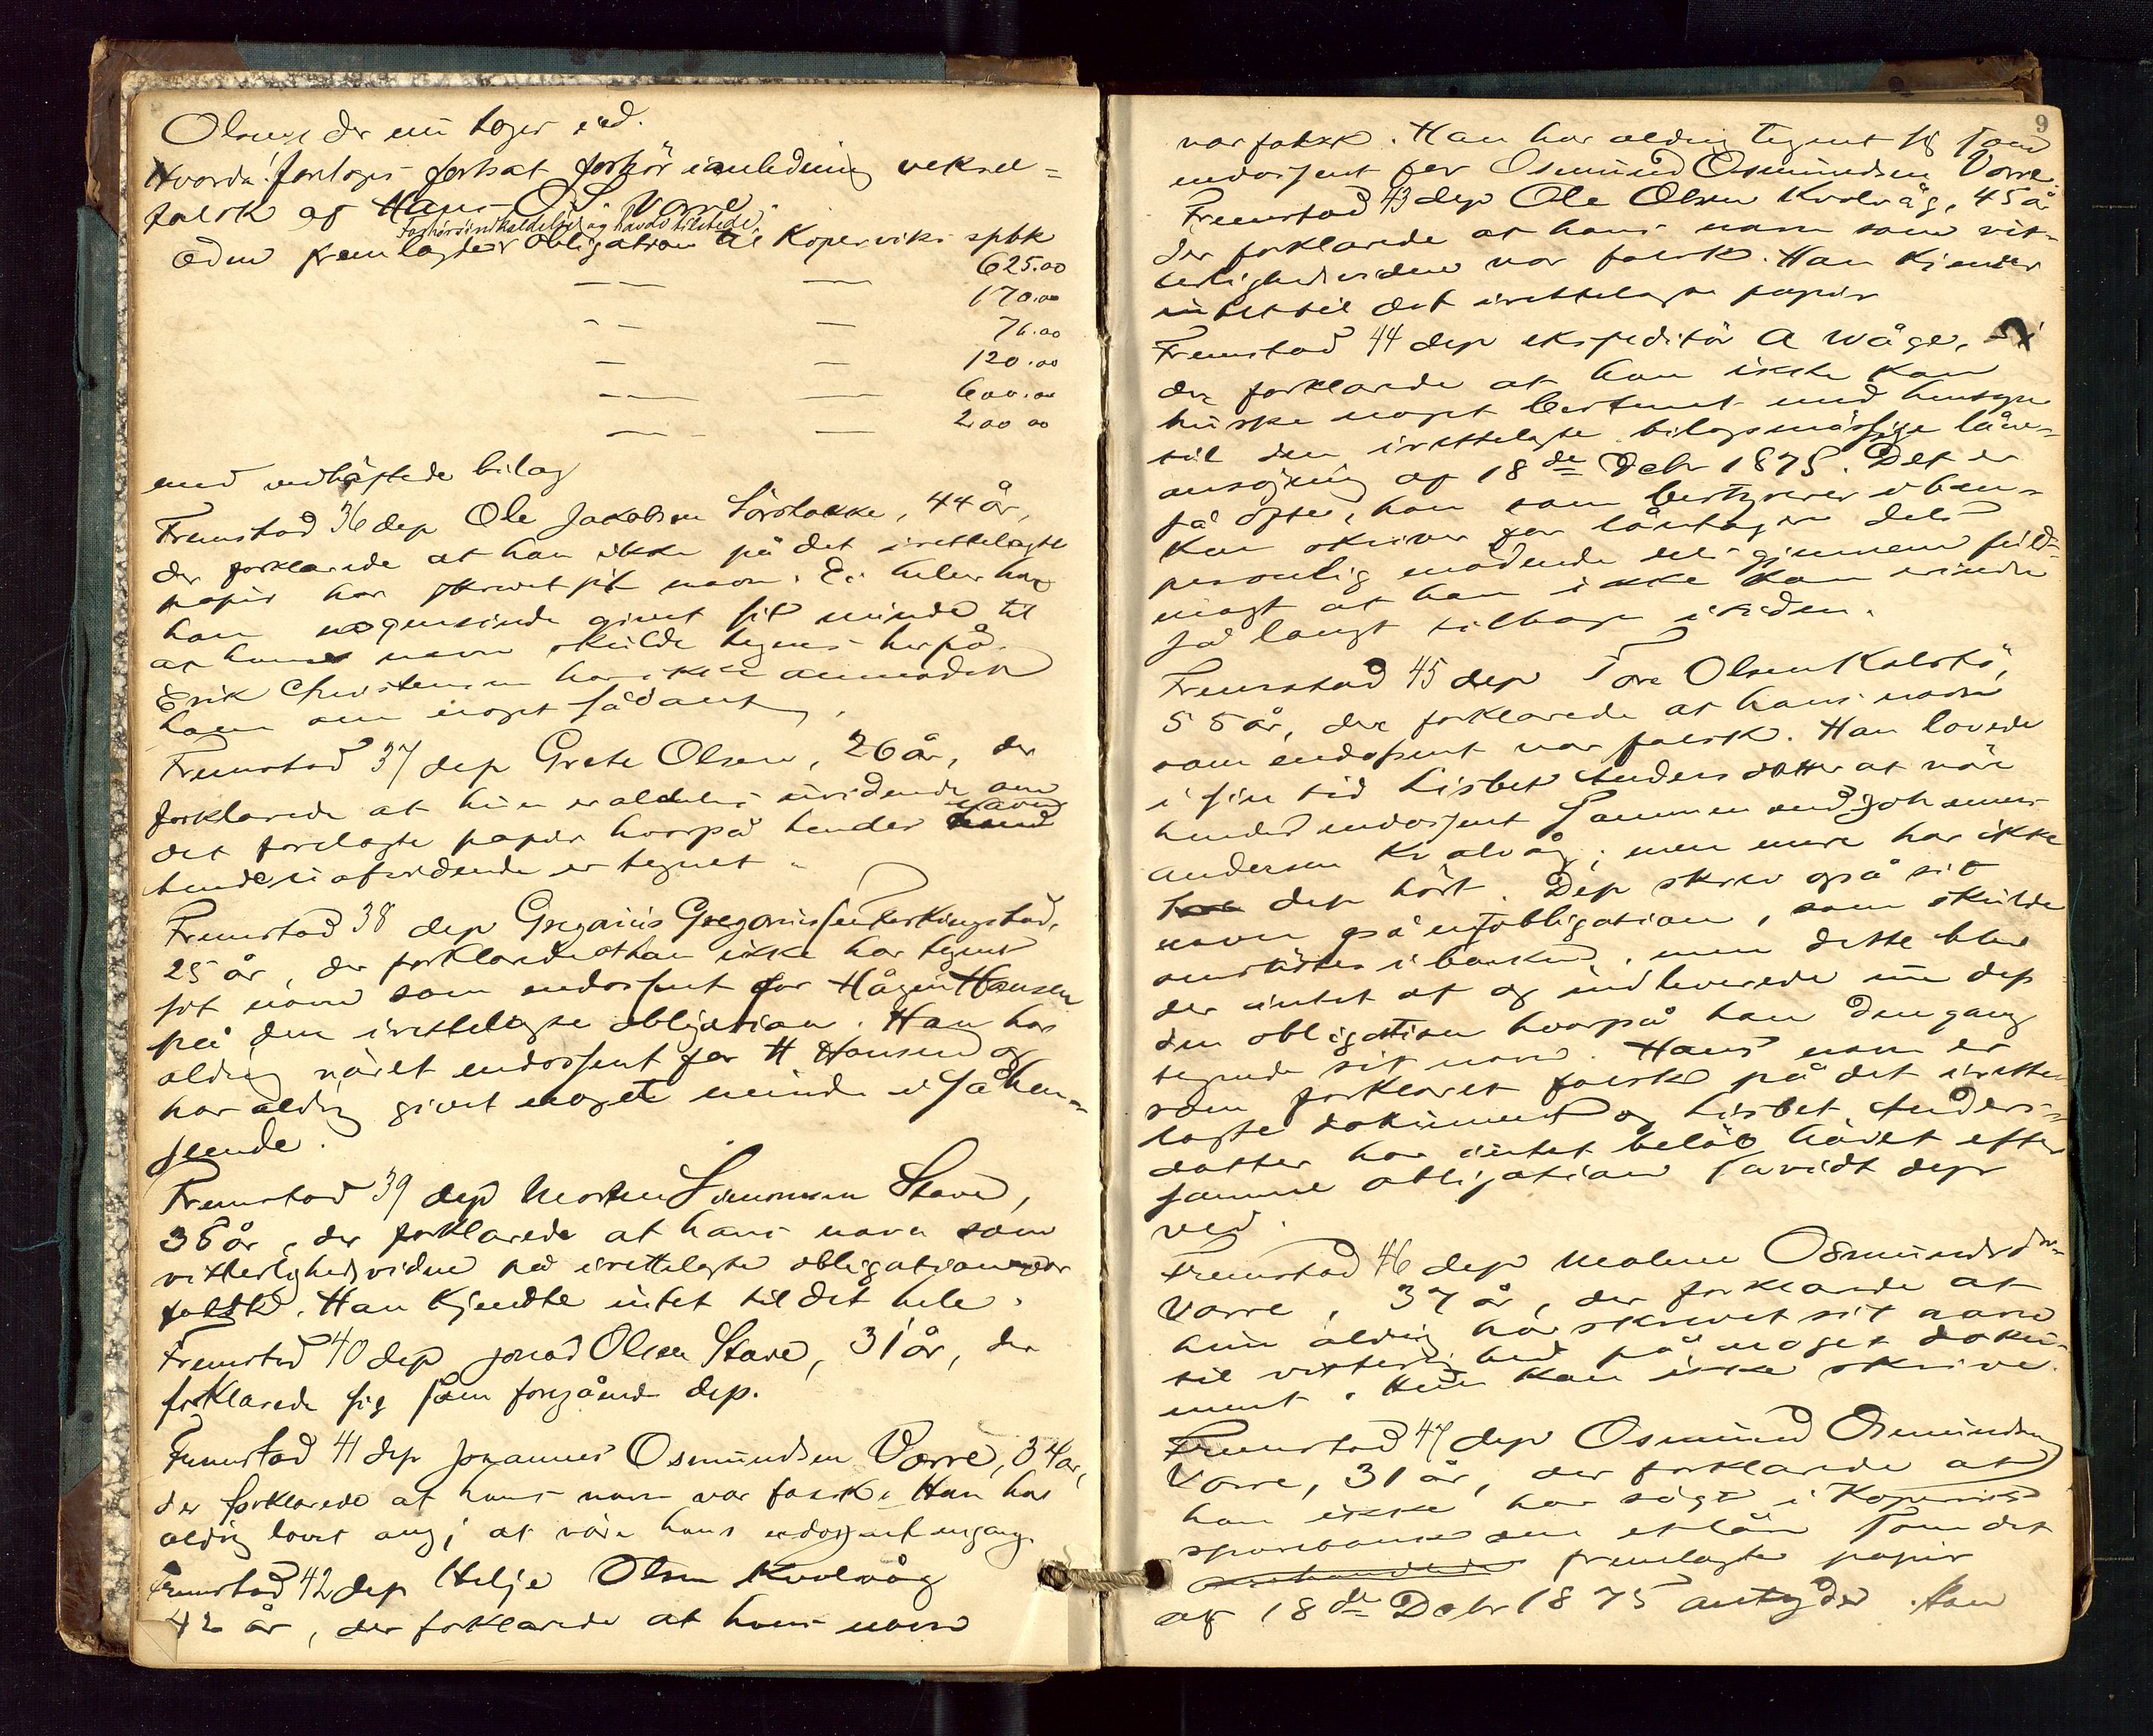 Olsens der nu tages ed.
Hvorda! foretoges fortsat forhör i anledning veksel=
falsk af Hans O S. Vorre.
Forhörsindkaldelse og havde tilstede.
Edm fremlagde obligation til Kopervik spbk
— — — 625.00
— — — 170.00
— — 76.00
— — 120.00
— — — 600.00
— — 200 00
med vedhäftede bilag
Fremstod 36 dep Ole Jakobsen Sörstokke, 44 år,
der forklarede at han ikke på det irettelagte
papir har skrevet sit navn. Ei heller har
han nogensinde givet sit minde til
at hans navn skulde tegnes herpå.
Erik Christensen har ikke anmodet
ham om noget sådant.
Fremstod 37 dep Grete Olsen, 26 år, der
forklarede at hun er aldeles uvidende om
det forelagte papir hvorpå hendes navn
hende uafvidende er tegnet.
Fremstod 38 dep Gregorius Gregoriussen
25 år, der forklarede at han ikke har tegnet
sit navn som endossent for Hågen Hansen
på den irettelagte obligation. Han har
aldrig väret endossent for H Hansen og
har aldrig givet noget minde i så hen=
seende.
Fremstod 39 dep Morten Simonsen Stave,
36 år, der forklarede at hans navn som
vitterlighedsvidne på irettelagte obligation var
falsk. Han kjendte intet til det hele.
Fremstod 40 dep Jonas Olsen Stave, 31 år, der
forklarede sig som foregående dep.
Fremstod 41 dep Johannes Osmundsen Vorre, 34 år,
der forklarede at hans navn var falsk. Han har
aldrig lovet at väre hans endossent engang.
Fremstod 42 dep Helje Olsen Kvolvåg
42 år, der forklarede at hans navn
9
var falsk. Han har aldrig tegnet sig som
endossent for Osmund Osmundsen Vorre.
Fremstod 43 dep Ole Olsen Kvolvåg, 45 år
der forklarede at hans navn som vit=
terlighedsvidne var falsk. Han kjender
intet til det irettelagte papir
Fremstod 44 dep ekspeditör A Wåge,
der forklarede at han ikke kan
huske noget bestemt med hensyn
til den irettelagte bilagsmässige låne=
ansögning af 18de Debr 1875. Det er
så ofte, han som bestyrer i ban=
ken skriver for låntagere dels
personlig mödende dels gjennem fuld=
magt at han ikke kan erindre
så langt tilbage i tiden.
Fremstod 45 dep Tore Olsen Kalstö,
55 år, der forklarede at hans navn
som endossent var falsk. Han lovede
i sin tid Lisbet Andersdatter at väre
hendes endossent sammen med Johannes
Andersen Kvalvåg; men mere har ikke
dep hört. Dep skrev også sit
navn på en obligation, som skulde
omsättes i banken, men dette blev
der intet af og indleverede nu dep
den obligation hvorpå han dengang
tegnede sit navn. Hans navn er
som forklaret falsk på det irette=
lagte dokument og Lisbet Anders=
datter har intet belöb hävet efter
samme obligation såvidt dep
ved.
Fremstod 46 dep Malene Osmundsdtr
Vorre, 37 år, der forklarede at
hun aldrig har skrevet sit navn
til vitterlighed på noget doku=
ment. Hun kan ikke skrive.
Fremstod 47 dep Osmund Osmundsen
Vorre, 31 år, der forklarede at
han ikke har sögt i Kopervik
sparebank om et lån som det
fremlagte papir
af 18de Debr 1875 antyder. Han